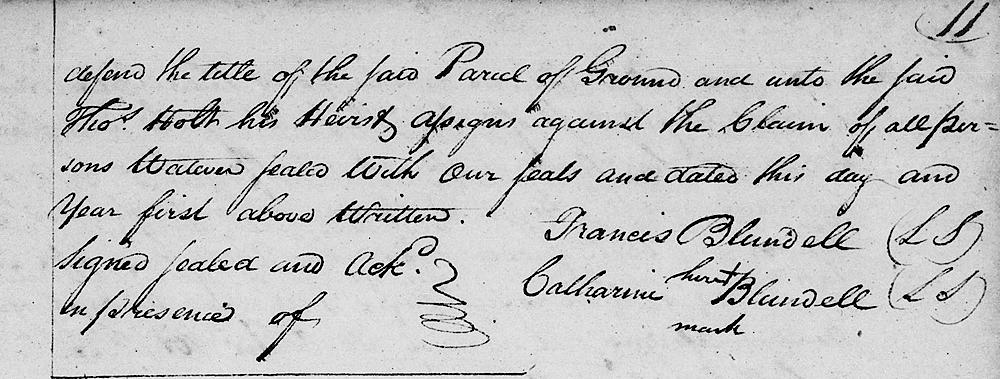 11
defend the title of the said Parcel of Ground and unto the said
Thos. Holt his Heirs & assigns against the Claim of all per=
sons Watever sealed With Our seals and dated this day and
Year first above Written.
Francis Blundell (L S)
Signed sealed and Ackd.
Catharine her + Blundell (L S)
mark
in presence of